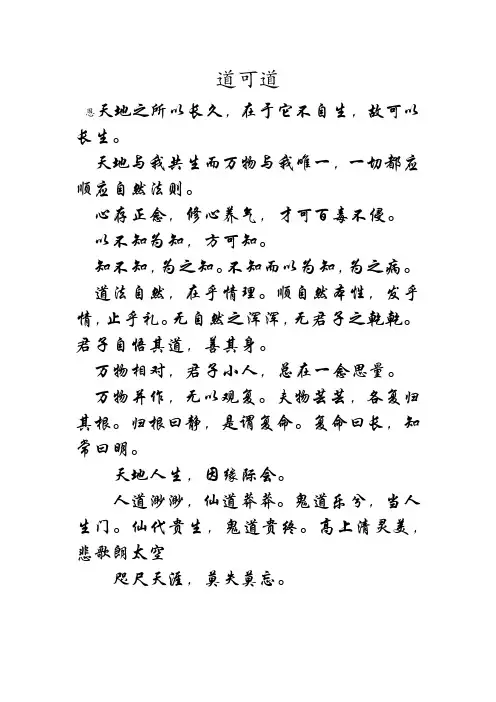 道可道
恩天地之所以长久，在于它不自生，故可以
长生。
天地与我共生而万物与我唯一，一切都应
顺应自然法则。
心存正念，修心养气，才可百毒不侵。
以不知为知，方可知。
知不知，为之知。不知而以为知，为之病。
道法自然，在乎情理。顺自然本性，发乎
情，止乎礼。无自然之浑浑，无君子之乾乾。
君子自悟其道，善其身。
万物相对，君子小人，总在一念思量。
万物并作，无以观复。夫物芸芸，各复归
其根。归根曰静，是谓复命。复命曰长，知
常曰明。
天地人生，因缘际会。
人道渺渺，仙道莽莽。鬼道乐兮，当人
生门。仙代贵生，鬼道贵终。高上清灵美，
悲歌朗太空
咫尺天涯，莫失莫忘。